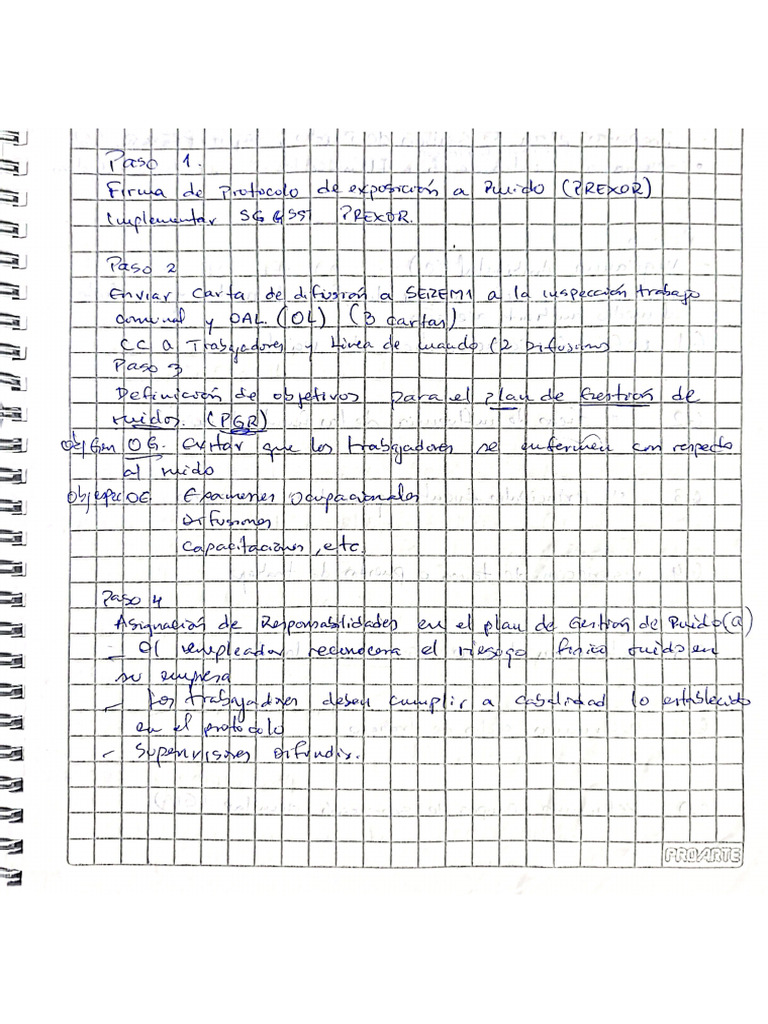 Paso 1.
Firma de Protocolo de exposición a Ruido (PREXOR)
Implementar SGGSST PREXOR.
Paso 2
Enviar Carta de difusión a SEIZEM1 a la inspección trabajo
comunal y OAL. (OL) (3 cartas)
CC a Trabajadores y Linea de mando (2 Difusiones
Paso 3
Definición de objetivos para el plan de Gestión de
ruidos. (PGR)
Obj Gen OG. Evitar que los trabajadores se enfermen con respecto
al ruido
Obj espec OE. Examenes Ocupacionales
Difusiones
Capacitaciones, etc.
Paso 4
Asignación de Responsabilidades en el plan de Gestión de Ruido (a)
- El empleador reconocera el riesgo fisico ruido en
su empresa
- Los trabajadores deben cumplir a cabalidad lo establecido
en el protocolo
- Supervisores Difundir.
PROARTE